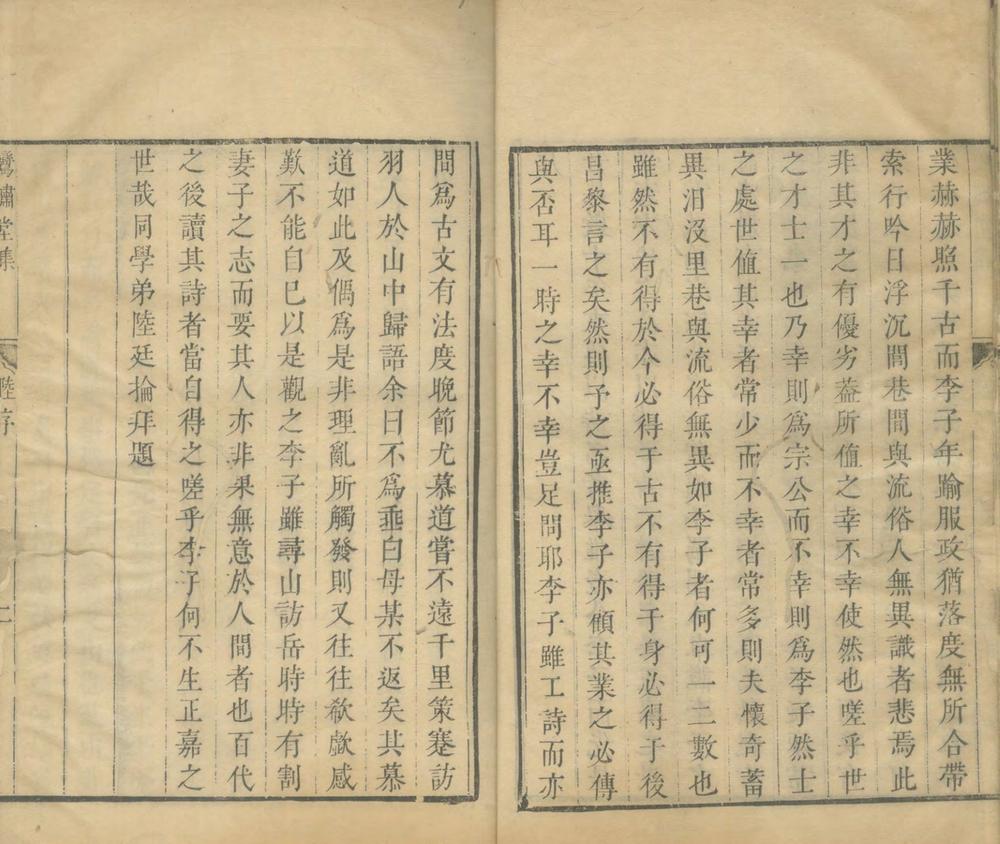 業赫赫照千古而李子年踰服政猶落度無所合帶
索行吟日浮沉閭巷間與流俗人無異識者悲焉此
非其才之有優劣葢所值之幸不幸使然也嗟乎世
之才士一也乃幸則爲宗公而不幸則爲李子然士
之處世值其幸者常少而不幸者常多則夫懷奇蓄
異汨沒里巷與流俗無異如李子者何可一二數也
雖然不有得於今必得于古不有得于身必得于後
昌黎言之矣然則予之亟推李子亦傾其業之必傳
與否耳一時之幸不幸豈足問耶李子雖工詩而亦
間爲古文有法度晚節尤慕道嘗不遠千里策蹇訪
羽人於山中歸語余曰不爲垂白母某不返矣其慕
道如此及偶爲是非理亂所觸發則又往往欷歔感
歎不能自已以是觀之李子雖尋山訪岳時時有割
妻子之志而要其人亦非果無意於人間者也百代
之後讀其詩者當自得之嗟乎李子何不生正嘉之
世哉同學弟陸廷掄拜題
嘯堂集 陸序 二